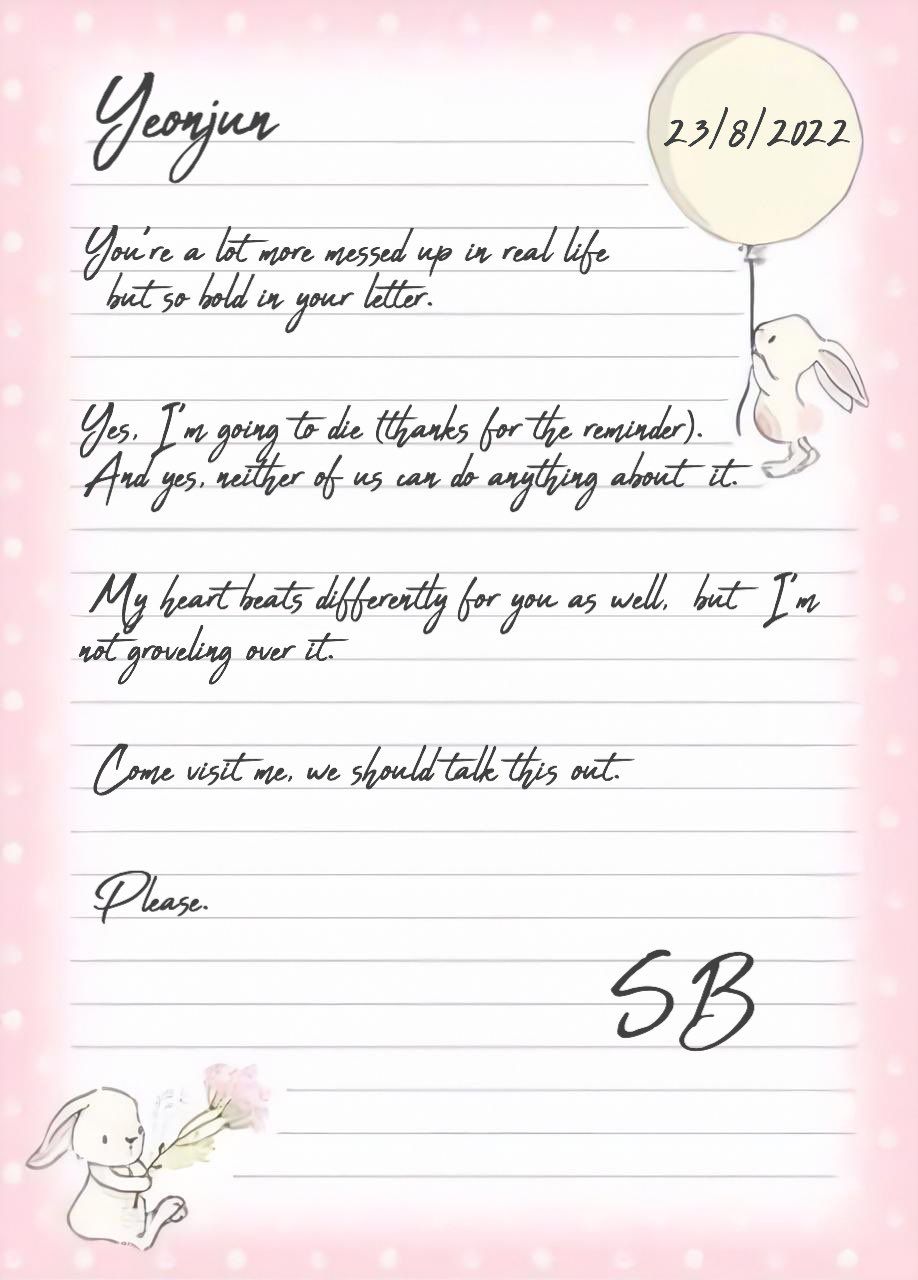 Yeonjun
23/8/2022
You're a lot more messed up in real life
but so bold in your letter.
Yes, I'm going to die (thanks for the reminder).
And yes, neither of us can do anything about it.
My heart beats differently for you as well, but I'm
not groveling over it.
Come visit me, we should talk this out.
Please.
SB